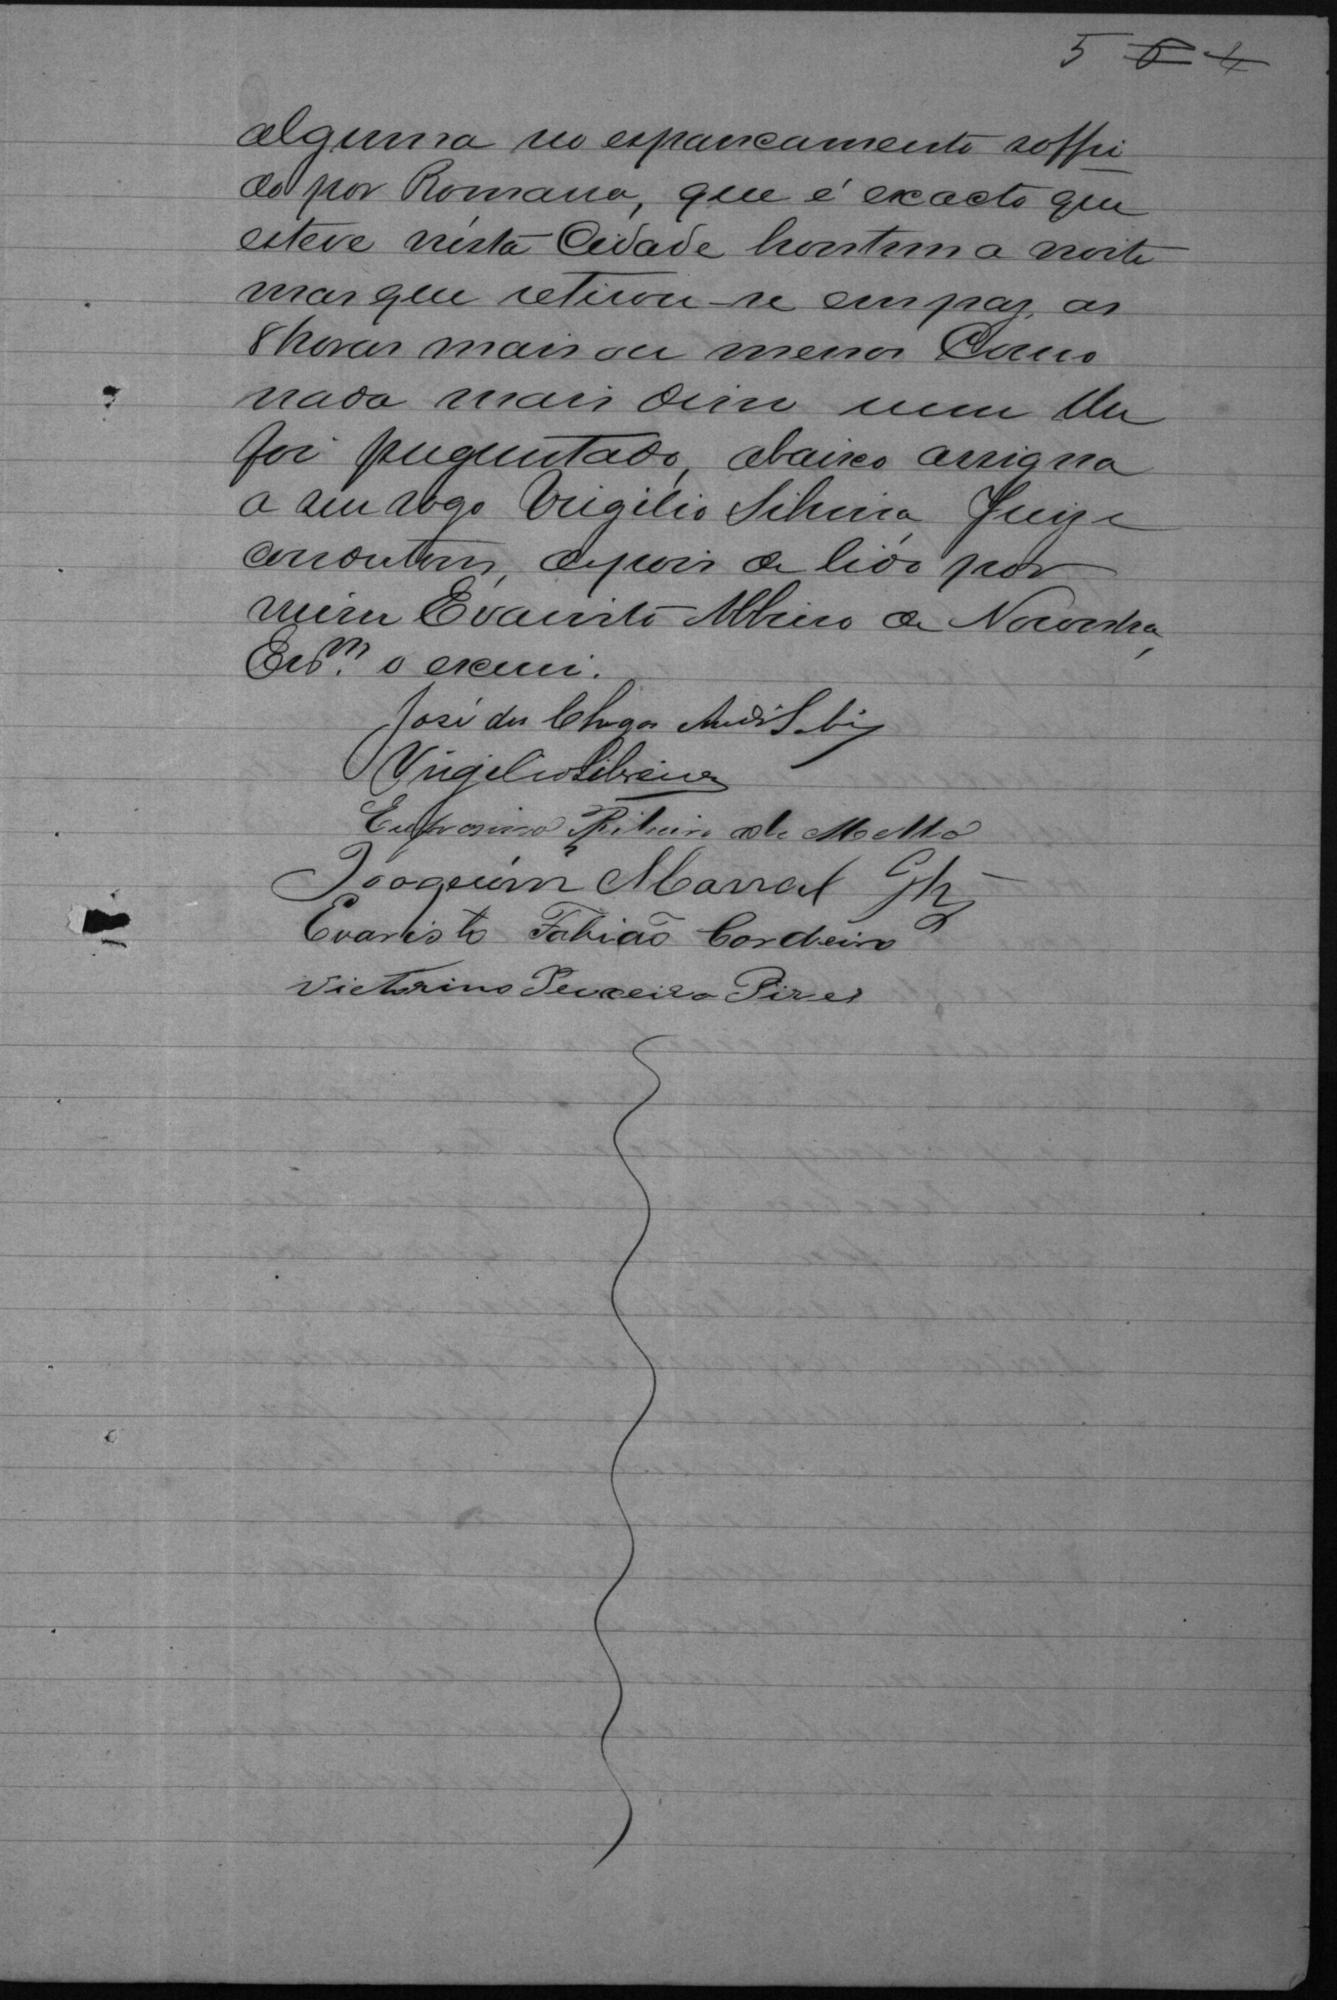 5 6 4
alguma no espancamento soffri
do por Romana, que é exacto que
esteve nésta Cidade hontem a noite
mas que retirou-se em paz, as
8 horas mais ou menos Como
nada mais disse nem lhe
foi preguntado, abaixo assigna
a seu rogo Virgilio Silveira, Juiz e
conductor, depois de lido por
mim Evaristo de
Esc.m o escrevi.
José das Chagas
Virgilio Silveira
Eufrosino Ribeiro de Mello
Joaquim Marral
Evaristo Fabião Cordeiro
Victorino Teixeira Pires